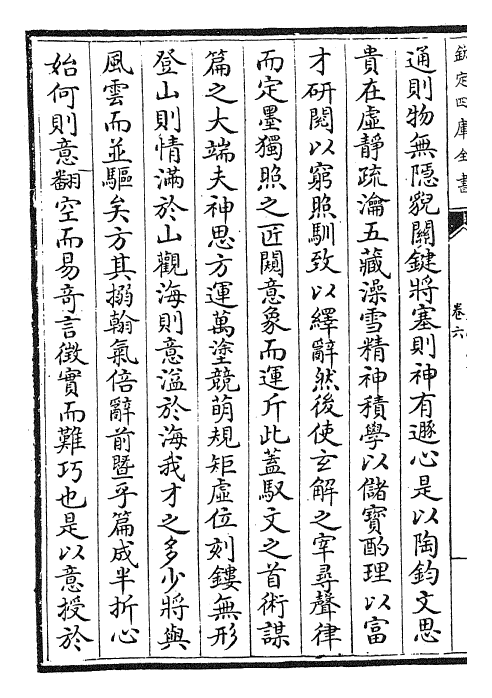 欽定四庫全書
卷六
通則物無隱貌關鍵將塞則神有遯心是以陶鈞文思
貴在虛靜疏瀹五藏澡雪精神積學以儲寶酌理以富
才研閱以窮照馴致以繹辭然後使玄解之宰尋聲律
而定墨獨照之匠闚意象而運斤此蓋馭文之首術謀
篇之大端夫神思方運萬塗競萌規矩虛位刻鏤無形
登山則情滿於山觀海則意溢於海我才之多少將與
風雲而並驅矣方其搦翰氣倍辭前曁乎篇成半折心
始何則意翻空而易奇言徵實而難巧也是以意授於